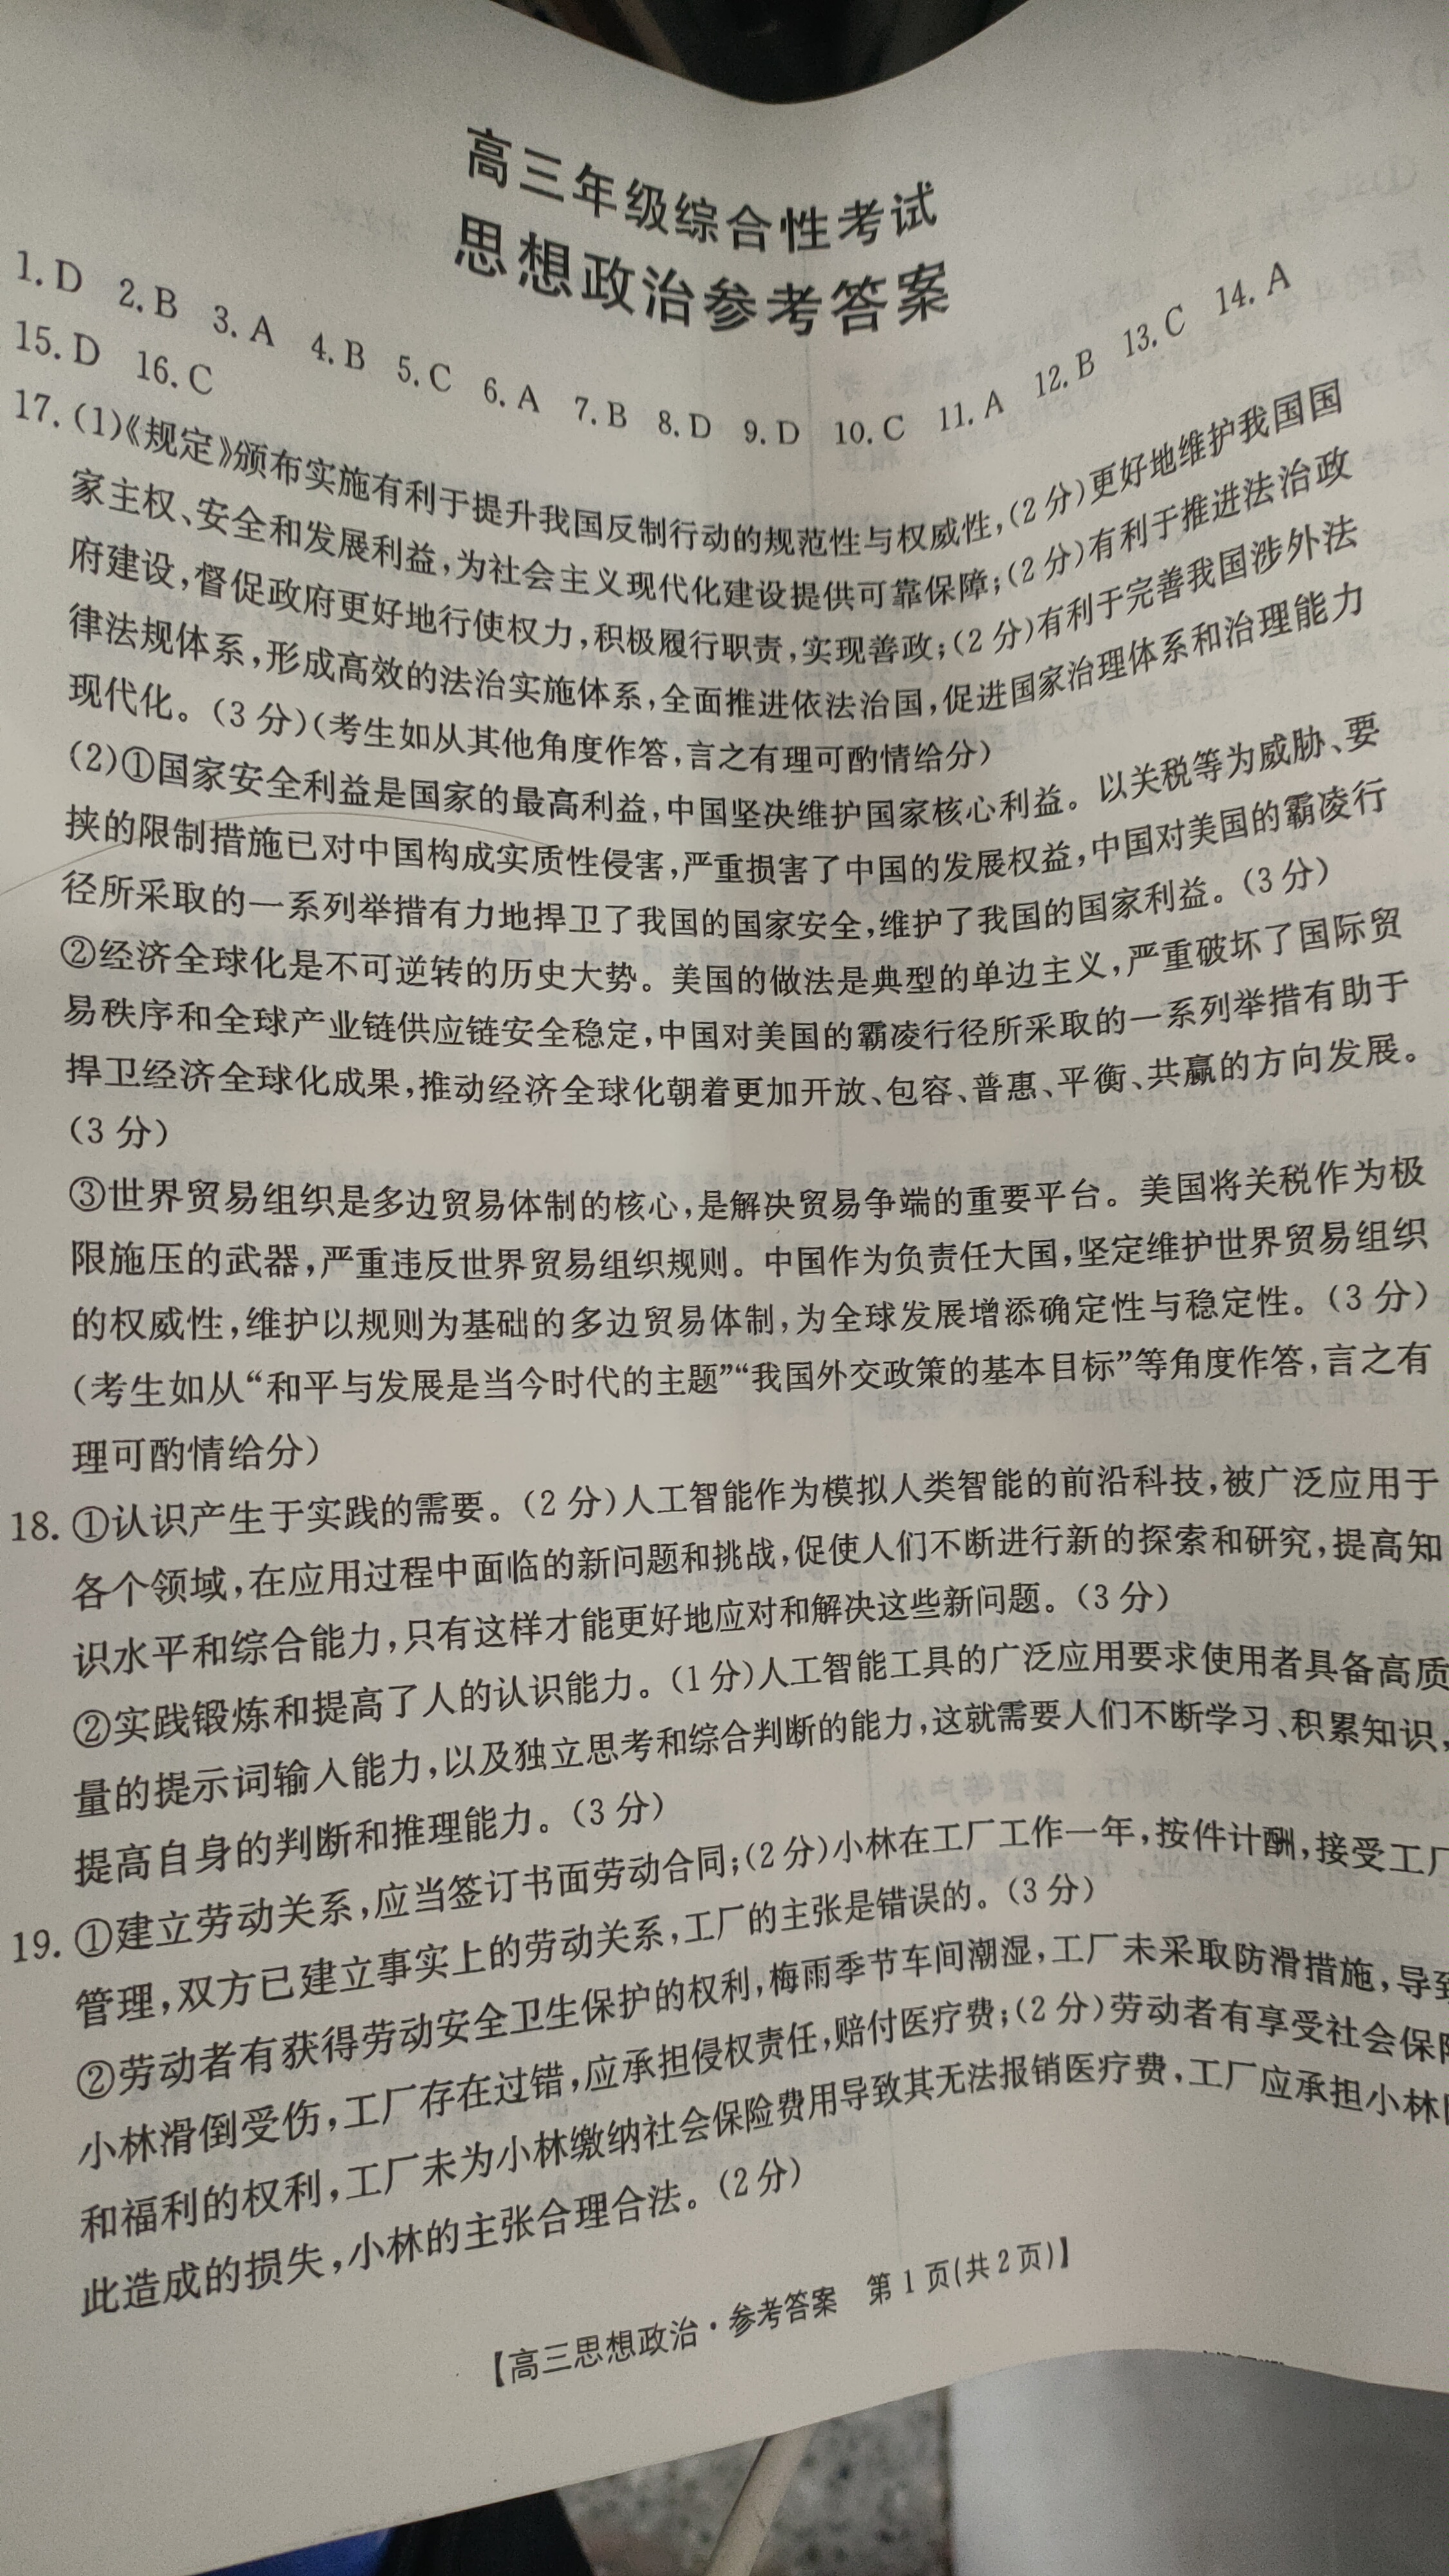 高三年级综合性考试
思想政治参考答案
1. D 2. B 3. A 4. B 5. C 6. A 7. B 8. D 9. D 10. C 11. A 12. B 13. C 14. A
15. D 16. C
17. (1)《规定》颁布实施有利于提升我国反制行动的规范性与权威性,(2分)更好地维护我国国
家主权、安全和发展利益,为社会主义现代化建设提供可靠保障;(2分)有利于推进法治政
府建设,督促政府更好地行使权力,积极履行职责,实现善政;(2分)有利于完善我国涉外法
律法规体系,形成高效的法治实施体系,全面推进依法治国,促进国家治理体系和治理能力
现代化。(3分)(考生如从其他角度作答,言之有理可酌情给分)
(2)①国家安全利益是国家的最高利益,中国坚决维护国家核心利益。以关税等为威胁、要
挟的限制措施已对中国构成实质性侵害,严重损害了中国的发展权益,中国对美国的霸凌行
径所采取的一系列举措有力地捍卫了我国的国家安全,维护了我国的国家利益。(3分)
②经济全球化是不可逆转的历史大势。美国的做法是典型的单边主义,严重破坏了国际贸
易秩序和全球产业链供应链安全稳定,中国对美国的霸凌行径所采取的一系列举措有助于
捍卫经济全球化成果,推动经济全球化朝着更加开放、包容、普惠、平衡、共赢的方向发展。
(3分)
③世界贸易组织是多边贸易体制的核心,是解决贸易争端的重要平台。美国将关税作为极
限施压的武器,严重违反世界贸易组织规则。中国作为负责任大国,坚定维护世界贸易组织
的权威性,维护以规则为基础的多边贸易体制,为全球发展增添确定性与稳定性。(3分)
(考生如从“和平与发展是当今时代的主题”“我国外交政策的基本目标”等角度作答,言之有
理可酌情给分)
18. ①认识产生于实践的需要。(2分)人工智能作为模拟人类智能的前沿科技,被广泛应用于
各个领域,在应用过程中面临的新问题和挑战,促使人们不断进行新的探索和研究,提高知
识水平和综合能力,只有这样才能更好地应对和解决这些新问题。(3分)
②实践锻炼和提高了人的认识能力。(1分)人工智能工具的广泛应用要求使用者具备高质
量的提示词输入能力,以及独立思考和综合判断的能力,这就需要人们不断学习、积累知识,
提高自身的判断和推理能力。(3分)
19. ①建立劳动关系,应当签订书面劳动合同;(2分)小林在工厂工作一年,按件计酬,接受工厂
管理,双方已建立事实上的劳动关系,工厂的主张是错误的。(3分)
②劳动者有获得劳动安全卫生保护的权利,梅雨季节车间潮湿,工厂未采取防滑措施,导致
小林滑倒受伤,工厂存在过错,应承担侵权责任,赔付医疗费;(2分)劳动者有享受社会保
和福利的权利,工厂未为小林缴纳社会保险费用导致其无法报销医疗费,工厂应承担小林
此造成的损失,小林的主张合理合法。(2分)
【高三思想政治·参考答案 第1页(共2页)】